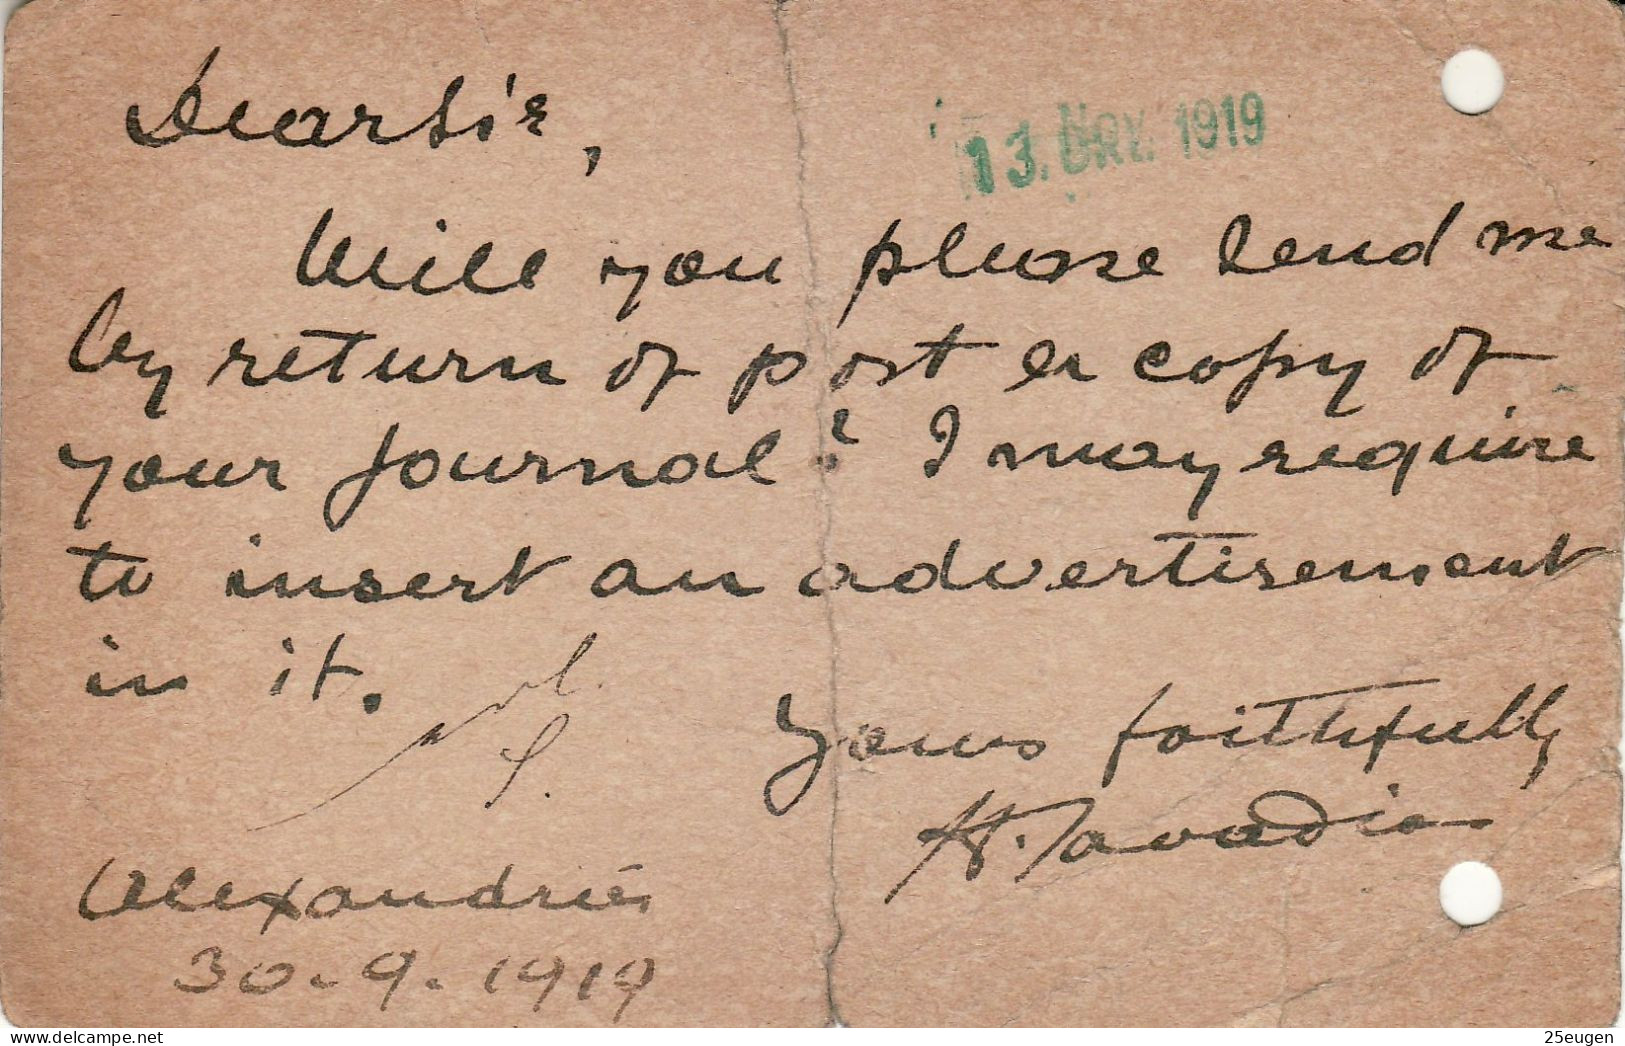 Dear Sir,
13. 1919
Will you please send me
by return of post a copy of
your Journal? I may require
to insert an advertisement
in it.
Yours faithfully
Alexandria
30-9-1919
25eugen